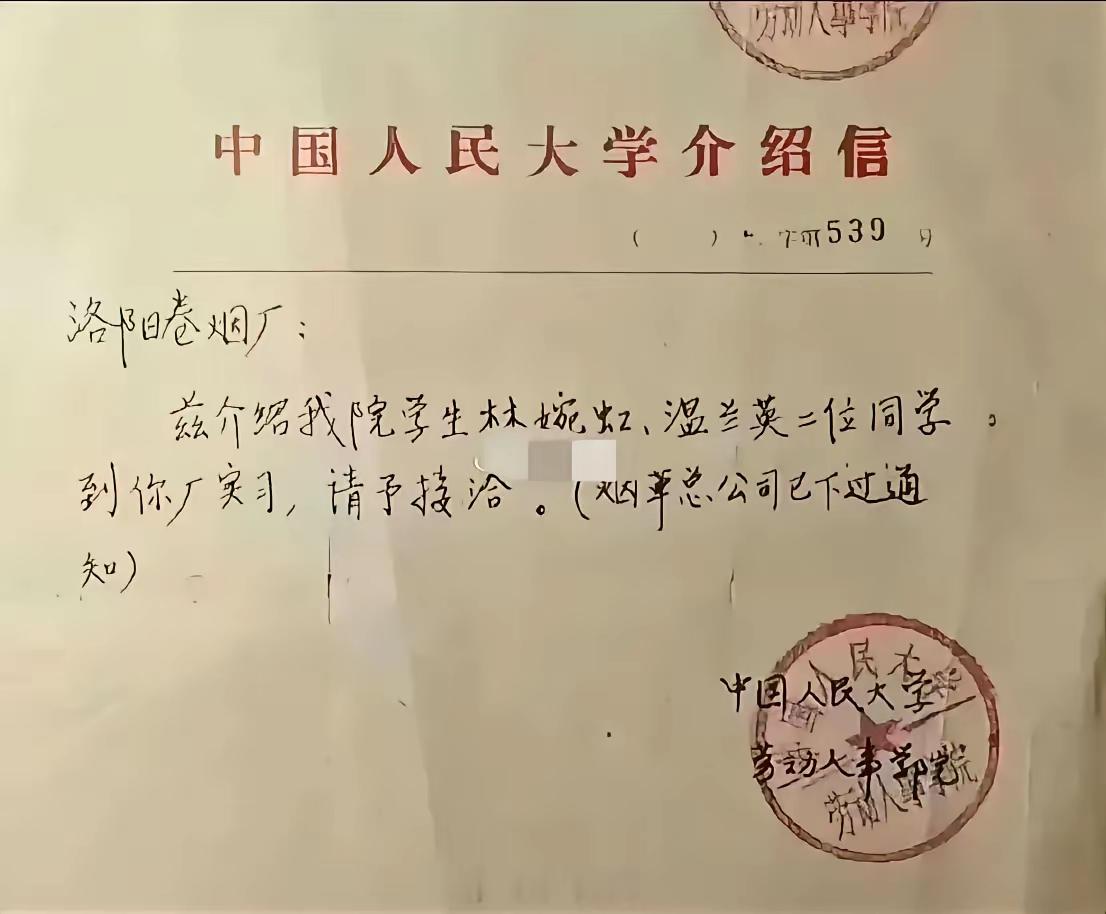 劳动人事学院
中国人民大学介绍信
( ) 539 号
洛阳卷烟厂：
兹介绍我院学生林婉虹、温兰英二位同学
到你厂实习，请予接洽。（烟草总公司已下过通
知）
中国人民大学
劳动人事学院
人民大
劳动人事学院